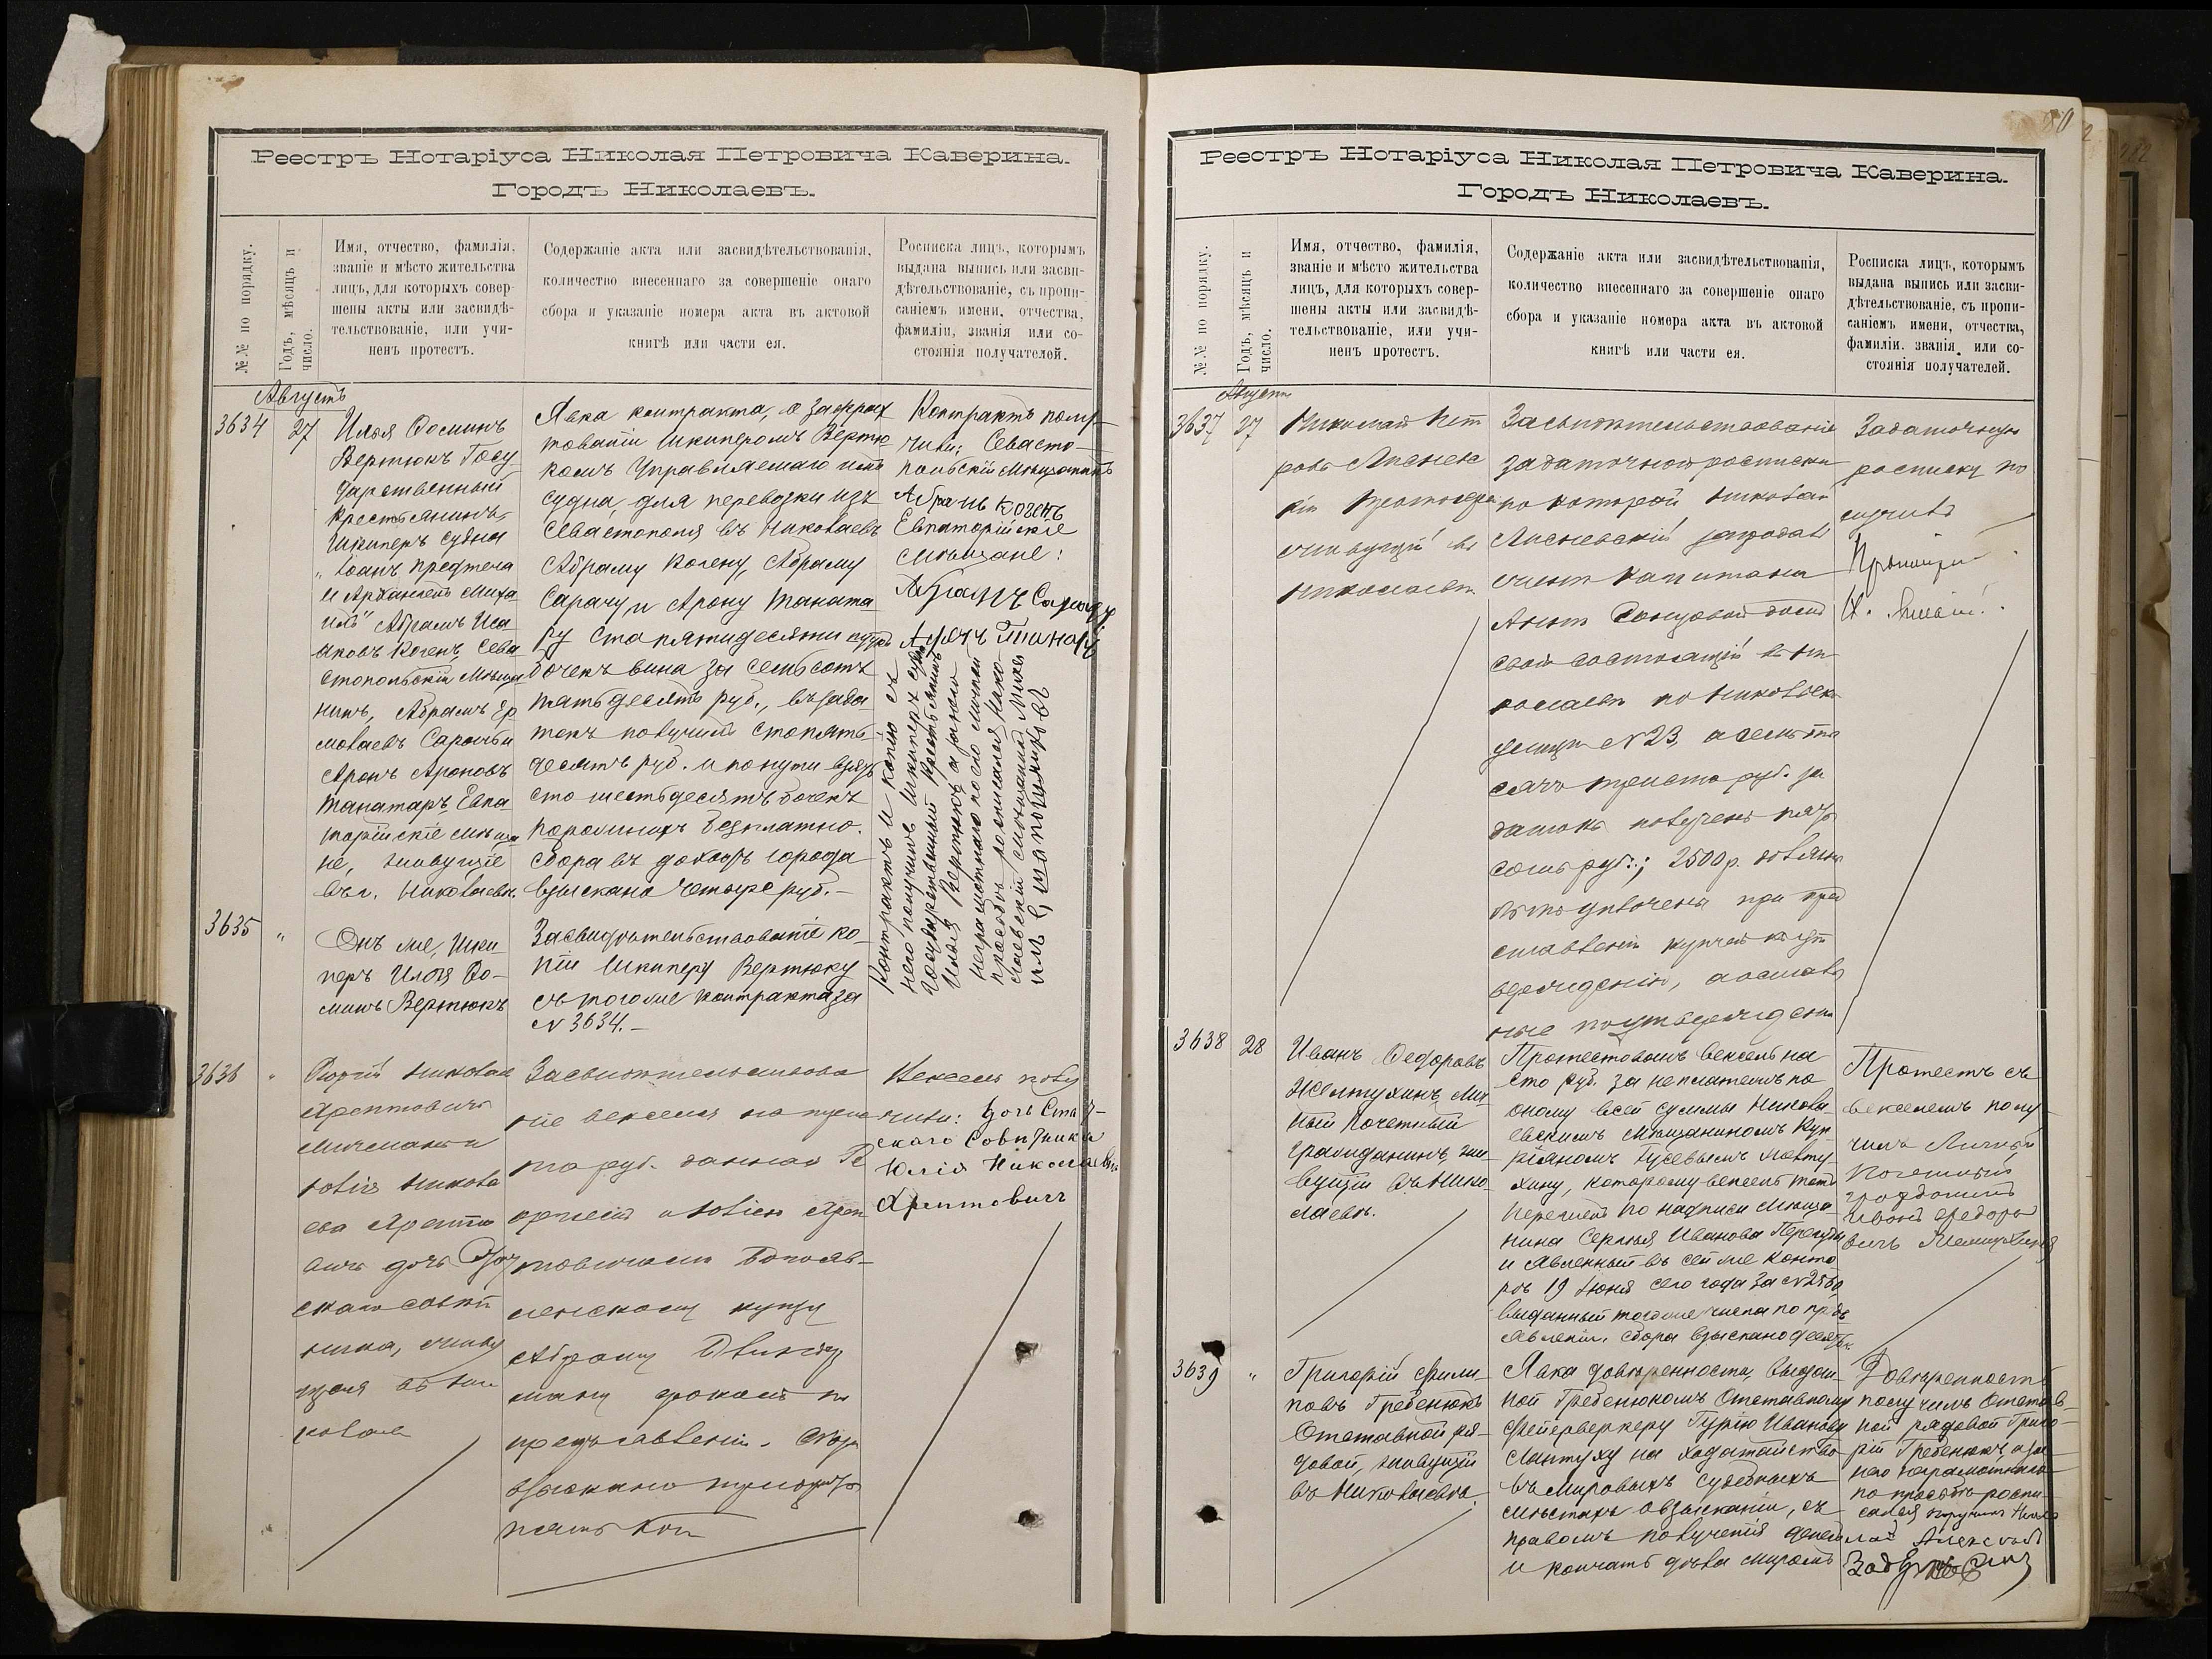 Реестръ Нотаріуса Николая Петровича Каверина.
Городъ Николаевъ.
№№ по порядку.
Годъ, мѣсяцъ и
число.
Имя, отчество, фамилія,
званіе и мѣсто жительства
лицъ, для которыхъ совер-
шены акты или засвидѣ-
тельствованіе, или учи-
ненъ протестъ.
Содержаніе акта или засвидѣтельствованія,
количество внесеннаго за совершеніе онаго
сбора и указаніе номера акта въ актовой
книгѣ или части ея.
Росписка лицъ, которымъ
выдана выпись или засви-
дѣтельствованіе, съ пропи-
саніемъ имени, отчества,
фамиліи, званія или со-
стоянія получателей.
Августъ
3634
27
Илья Ѳоминъ
Вертюкъ Госу-
дарственный
крестьянинъ,
Шкиперъ судна
"Іоанъ Предтеча
и Архангелъ Миха-
илъ" Абрамъ Иса-
аковъ Когенъ, Сева-
стопольскій мѣща-
нинъ, Абрамъ Ер
моваевъ Сарачъ и
Аронъ Ароновъ
Танатаръ, Евпа
торійскіе мѣща
не, живущіе
въ г. Николаевѣ.
Явка контракта, о зафрах
тованіи шкиперомъ Вертю
комъ Управляемаго имъ
судна, для перевозки изъ
Севастополя въ Николаевъ
Абраму Когену, Абраму
Сарачу и Арону Таната-
ру ста пятидесяти
бочекъ вина за семьсотъ
пятьдесятъ руб., въ зада
токъ получилъ сто пять-
десятъ руб. и по пути взять
сто шестьдесятъ бочекъ
порожнихъ безплатно.
Сбора въ доходъ города
взыскано четыре руб.-
Контрактъ полу-
чили: Севасто-
польскій мѣщанинъ
Абрамъ Когенъ
Евпаторійскіе
мѣщане:
Абрамъ Сарачъ
Аронъ Танатаръ
Контрактъ и копію съ
него получилъ Шкиперъ судна
Государственный крестьянинъ
Илья Вертюкъ а за него
неграмотнаго по его личной
просьбѣ росписался Нико-
лаевскій мѣщанинъ
3635
"
Онъ же, Шки-
перъ Илья Ѳо-
минъ Вертюкъ
Засвидѣтельствованіе ко-
піи Шкиперу Вертюку
съ того же контракта за
№ 3634.-
3636
"
Арептовичъ
Юлія Никола
ева Арепто
вичъ дочь
скаго совѣт
ника, живу
щая въ Ни
колае
Засвидѣтельствова
ніе векселя на
та руб. даннаго Ге
оргіемъ и Юліею Арен
товичами Богояв-
ленскому купцу
Абраму
ману срокомъ по
предъявленіи. Сбора
взыскано
пять коп
Вексель полу
чили: Дочь Стат-
скаго Совѣтника
Юлія Николаевна
Арептовичъ
80
Реестръ Нотаріуса Николая Петровича Каверина.
Городъ Николаевъ.
№№ по порядку.
Годъ, мѣсяцъ и
число.
Имя, отчество, фамилія,
званіе и мѣсто жительства
лицъ, для которыхъ совер-
шены акты или засвидѣ-
тельствованіе, или учи-
ненъ протестъ.
Содержаніе акта или засвидѣтельствованія,
количество внесеннаго за совершеніе онаго
сбора и указаніе номера акта въ актовой
книгѣ или части ея.
Росписка лицъ, которымъ
выдана выпись или засви-
дѣтельствованіе, съ пропи-
саніемъ имени, отчества,
фамиліи, званія, или со-
стоянія получателей.
Августъ
3637
27
Николай Пет
ровъ
кій
живущій въ
Николаевѣ
Засвидѣтельствованіе
задаточной росписки
по которой Николай
запродалъ
женѣ капитана
домъ
свой состоящій въ Ни
колаевѣ по Никольск
улицѣ №23, а семь ты
сячъ триста руб. за
датокъ полученъ пять
сотъ руб.; 2500 р. должны
быть уплочены при пред
ставленіи купчей къ ут
вержденію, а осталь
ные по утвержденіи
Задаточную
росписку по
лучилъ
3638
28
Иванъ Ѳедоровъ
Желтухинъ, Лич
ный Почетный
гражданинъ, жи-
вущій въ Нико-
лаевѣ.
Протестованъ вексель на
сто руб. за неплатежъ по
оному всей суммы Никола
евскимъ мѣщаниномъ Куп
ріяномъ Гусевымъ Желту-
хину, которому вексель тотъ
перешелъ по надписи мѣща-
нина Сергѣя Иванова
и явленный въ сей же конто
рѣ 19 Іюня сего года за №
выданный того же числа по предъ
явленіи. Сбора взыскано десять к.
Протестъ съ
векселемъ полу
чилъ Личный
Почетный
гражданинъ
Иванъ Федоро
вичъ Желтухинъ
3639
"
Григорій Фили-
повъ Гребенюкъ
Отставной ря-
довой, живущій
въ Николаевѣ.
Явка довѣренности, выдан-
ной Гребенюкомъ Отставному
фейерверкеру Гурію Иванову
Лантуху на ходатайство
въ Мировыхъ судебныхъ
мѣстахъ о взысканіи, съ
правомъ полученія денегъ
и кончать дѣла миромъ
Довѣренность
получилъ Отстав-
ной рядовой Григо-
рій Гребенюкъ, а за
него неграмотнаго
по просьбѣ роспи-
сался поручикъ Нико
лай Алексѣевъ